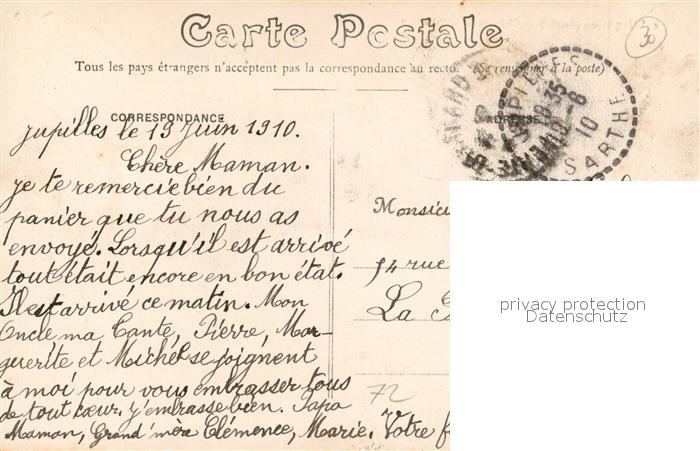 Carte Postale
30
Tous les pays étrangers n'acceptent pas la correspondance au recto. (Se renseigner à la poste)
CORRESPONDANCE
ADRESSE
JUPILLES
18-35
10
SARTHE
Jupilles le 13 Juin 1910.
Chère Maman.
je te remercie bien du
panier que tu nous as
envoyé. Lorsqu'il est arrivé
tout était encore en bon état.
Il est arrivé ce matin. Mon
Oncle ma Tante, Pierre, Mar-
guerite et Michel se joignent
à moi pour vous embrasser tous
de tout cœur. j'embrasse bien. Papa
Maman, Grand'mère Clémence, Marie. Votre f
Monsieu
54 rue
La
72
privacy protection
Datenschutz